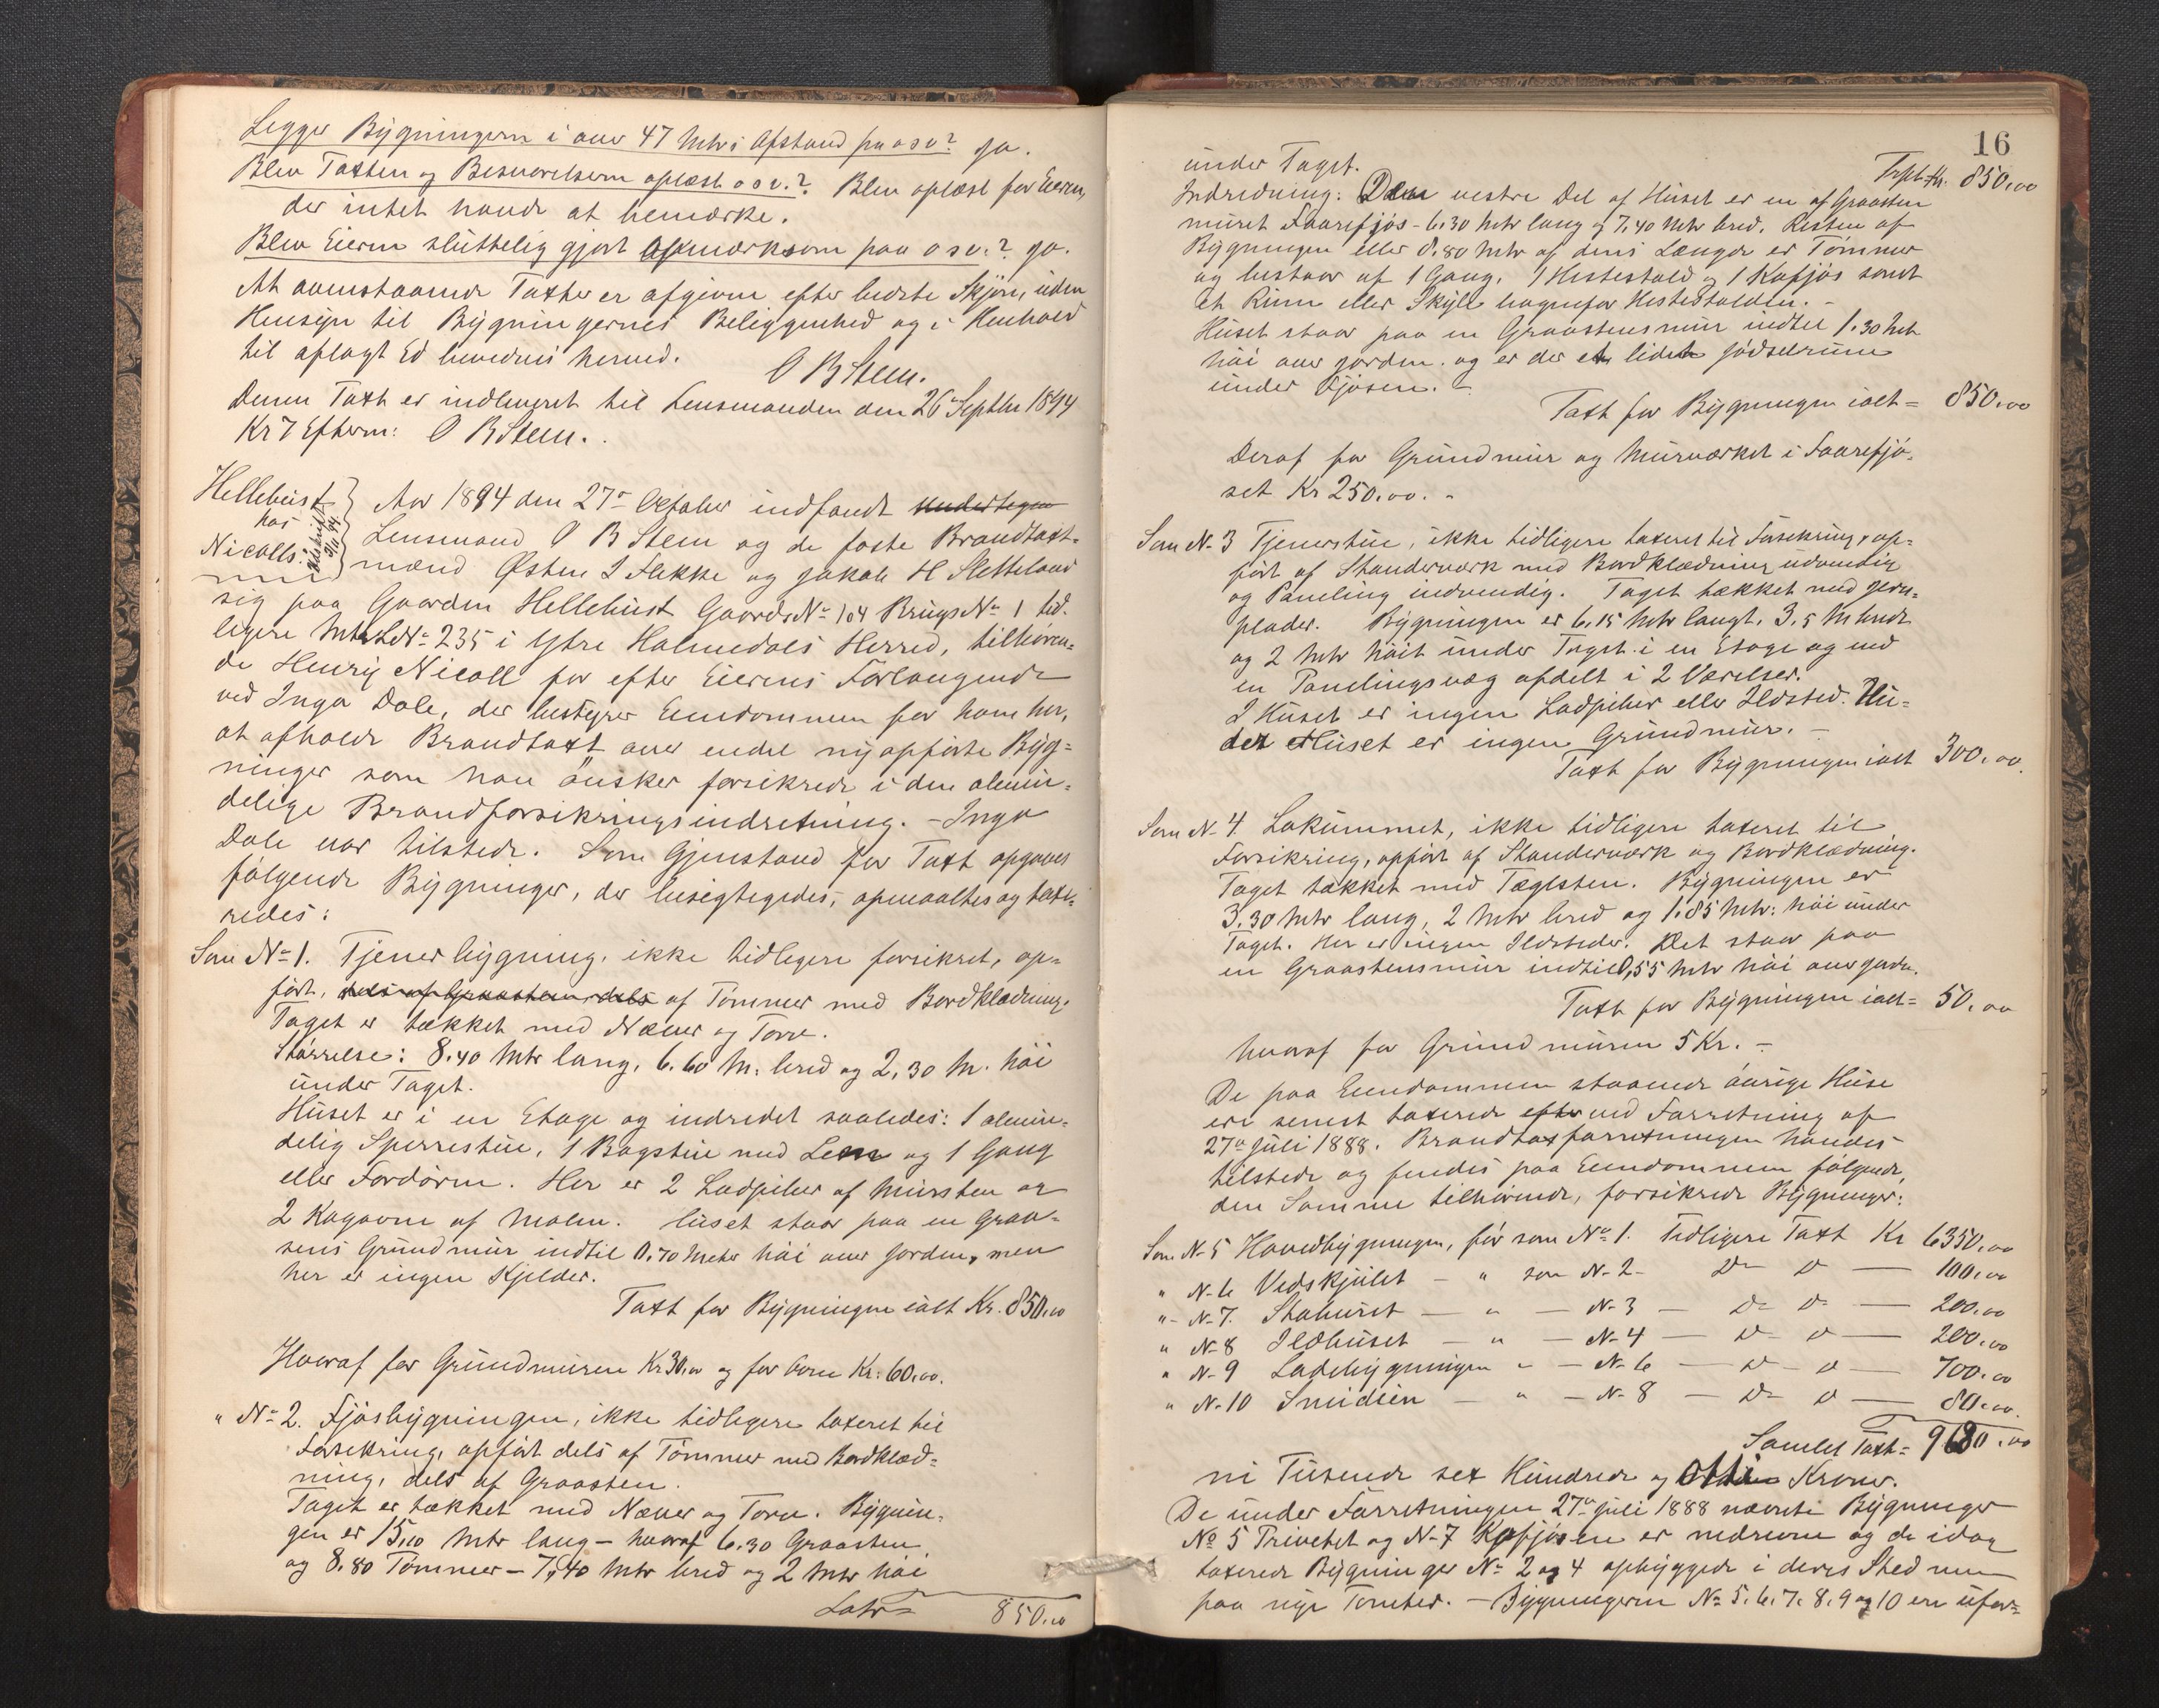 Legger Bygningern i over 47 Mtr: Afstand fra o s v? Ja.
Blev Taxten og Besvarelsern oplæst o s v.? Blev oplæst for Eiern,
der intet havde at bemærke.
Blev Eiern sluttelig gjort opmærksom paa o s v.? Ja.
At ovenstaaende Taxter er afgivne efter bedste Skjøn, uden
Hensyn til Bygningernes Beliggenhed og i Henhold
til aflagt Ed bevidnes herved.
O B Steen.
Denne Taxt er indleveret til Lensmanden den 26 Septbr 1894
Kl 7 Efterm: O B Steen.
Hellehust
hos
Nicolls.
Udskrift
Aar 1894 den 27de Oktober indfandt undertegn
Lensmand O B Steen og de faste Brandtaxt-
mænd Østen I Flekke og Jakob H Sletteland
sig paa Gaarden Hellehust Gaards No 104 Brugs No 1 tid-
ligere Mtr L No 235 i Ytre Holmedals Herred, tilhøren-
de Henry Nicoll for efter Eierens Forlangende
ved Inga Dale, der bestyrer Eiendommen for ham her,
at afholde Brandtaxt over endel nyopførte Byg-
ninger som han ønsker forsikrede i den almin-
delige Brandforsikringsindretning. - Inga
Dale var tilstede. Som Gjenstand for Taxt opgaves
følgende Bygninger, der besigtigedes, opmaaltes og taxe-
redes:
Som No 1. Tjenerbygning, ikke tidligere forsikret, op-
ført, dels af Graasten, dels af Tømmer med Bordklædning.
Taget er tækket med Næver og Torv.
Størrelse: 8.40 Mtr lang, 6.60 M: bred og 2,30 M. høi
under Taget.
Huset er i en Etage og indredet saaledes: 1 almin-
delig Sperrestue, 1 Bagstue med Lem og 1 Gang
eller Fordøren. Her er 2 Ladpiber af Mursten og
2 Kagovne af Malm. Huset staar paa en Graa-
stens Grundmur indtil 0.70 Meter høi over Jorden, men
her er ingen Kjelder.
Taxt for Bygningen ialt Kr. 850.00
Hvoraf for Grundmuren Kr 30.00 og for ovne Kr: 60.00.
" No 2. Fjøsbygningen, ikke tidligere taxeret til
Forsikring, opført dels af Tømmer med Bordklæd-
ning, dels af Graasten.
Taget er tækket med Næver og Torv. Bygnin-
gen er 15,10 Mtr lang - hvoraf 6.30 Graasten
og 8.80 Tømmer - 7,40 Mtr bred og 2 Mtr høi
Latr 850.00
16
Trspt Kr. 850,00
under Taget.
Indredning: Den vestre Del af Huset er en af Graasten
muret Faarefjøs - 6.30 Mtr lang og 7.40 Mtr bred. Resten af
Bygningen eller 8.80 Mtr af dens Længde er Tømmer
og bestaar af 1 Gang, 1 Hestestald og 1 Kofjøs samt
et Rum eller Skyle bagenfor Hestestalden. -
Huset staar paa en Graastensmur indtil 1.30 Mtr
høi over Jorden og er der et lidet Gjødselrum
under Fjøsen. -
Taxt for Bygningen ialt = 850.00
Deraf for Grundmur og Murværket i Faarefjø-
set Kr 250.00. -
Som No 3 Tjenerstue, ikke tidligere taxeret til Forsikring, op-
ført af Standerværk med Bordklædning udvendig
og Paneling indvendig. Taget tækket med Jern-
plader. Bygningen er 6,15 Mtr langt, 3,5 M bredt
og 2 Mtr høit under Taget i en Etage og ved
en Panelingsvæg afdelt i 2 Værelser.
I Huset er ingen Ladpiber eller Ildsted. Un-
der Huset er ingen Grundmur. -
Taxt for Bygningen ialt 300.00.
Som No 4. Lokummet, ikke tidligere taxeret til
Forsikring, opført af Standerværk og Bordklædning.
Taget tækket med Tæglsten. Bygningen er
3.30 Mtr lang, 2 Mtr bred og 1.85 Mtr: høi under
Taget. Her er ingen Ildsteder. Det staar paa
en Graastensmur indtil 0,55 Mtr høi over Jorden.
Taxt for Bygningen ialt = 50.00
hvoraf for Grundmuren 5 Kr. -
De paa Eiendommen staaende øvrige Huse
ere senest taxerede efter ved Forretning af
27de Juli 1888. Brandtaxforretningen havdes
tilstede og fandtes paa Eiendommen følgende,
den Samme tilhørende, forsikrede Bygninger:
Som No 5 Hovedbygningen, før som No 1. Tidligere Taxt Kr 6350.00
" No 6 Vedskjulet - " som No 2 - Do Do — 100.00
" No 7. Staburet — " — No 3 — Do Do — 200.00
" No 8 Ildhuset — " — No 4 — Do Do — 200.00
" No 9 Ladebygningen " — No 6 — Do Do — 700.00
" No 10 Smidien — " — No 8 — Do Do — 80.00.
Samlet Taxt = 9680.00
ni Tusende sex Hundrede og Otti Kroner.
De under Forretningen 27de Juli 1888 nævnte Bygninger
No 5 Privetet og No 7 Kofjøsen er nedrevne og de idag
taxerede Bygninger No 2 og 4 opbyggede i deres Sted men
paa nye Tomter. - Bygningerne No 5. 6. 7. 8. 9 og 10 ere ufor-